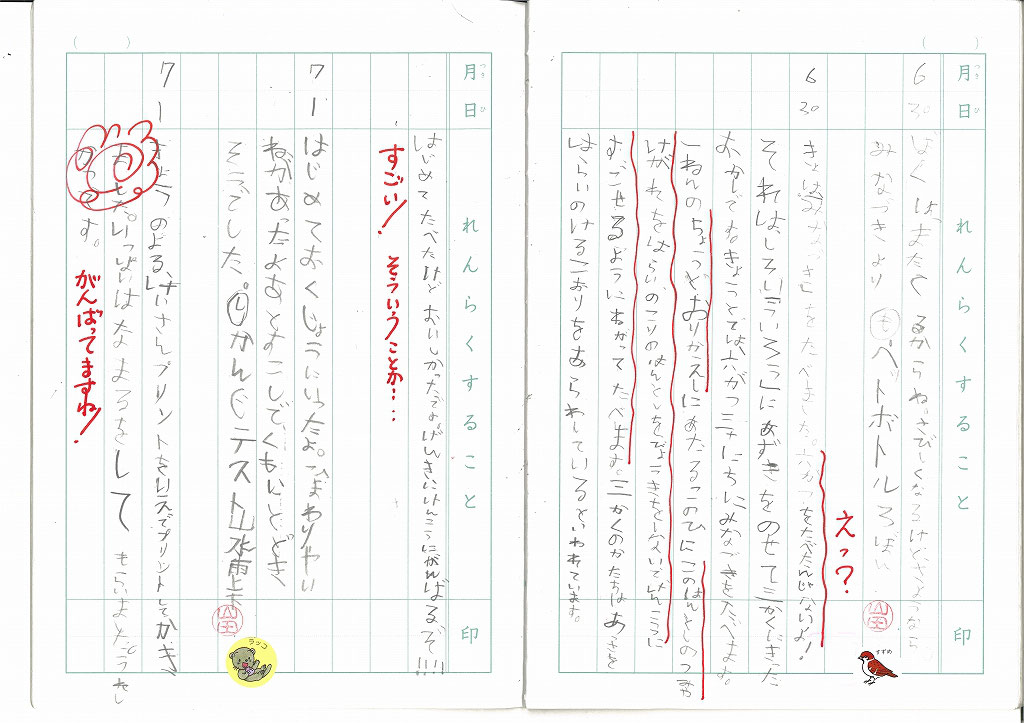 月日
れんらくすること
印
6 30
ぼくは、またくるからね。さびしくなるけどさようなら
みなづきより も ペットボトル ろばい
えっ?
6 30
きょはみなづきをたべました。六がつをたべたんじゃないよ!
それは、しろい「ういろう」にあずきをのせて三かくにきった
おかしです。きょうとでは、六がつ三十にちにみなづきをたべます。
一ねんのちょうどおりかえしにあたるこのひにこのはんとしのつみ
けがれをはらいのこりのはんとしをびょうきをしないでけんこうに
すごせるようにねがってたべます。三かくのかたちはあつさを
はらいのけるこおりをあらわしているといわれています。
すずめ
月日
れんらくすること
印
はじめてたべたけどおいしかったよ。げんきにけんこうにがんばるぞ!!!!
すごい! そういうことか…
7 1
はじめておくじょうにいったよ。ひまわりやい
ねがあったよ。あとすこしで、くもにとどき
そうでした。 し かんじテスト 山水雨上下
ラッコ
7 1
きょうのよる、けいさんプリントをします
ました。いっぱいはなまるをして もらいよ
がんばってますね!